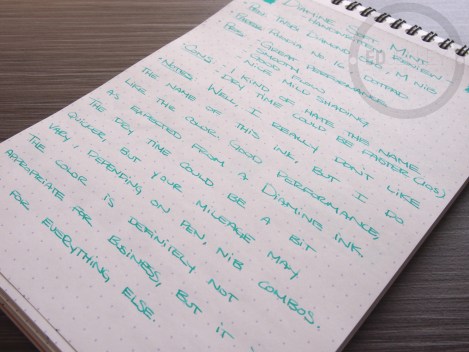 DIAMINE MINT
HANDWRITTEN REVIEW
PEN: TWSBI DIAMOND M NIB
PAPER: RHODIA No 16 DOTPAD
PROS: GREAT PERFORMANCE
SMOOTH FLOW
GOOD MILD SHADING
NICE
CONS: I KIND OF HATE THE NAME
DRY TIME COULD BE FASTER (10S)
NOTES: WELL, I REALLY DON'T LIKE
THE NAME OF THIS INK, BUT I DO
LIKE THE COLOR. GOOD PERFORMANCE,
AS EXPECTED FROM A DIAMINE INK.
THE DRY TIME COULD BE A BIT
QUICKER, BUT YOUR MILEAGE MAY
VARY, DEPENDING ON PEN, NIB COMBOS.
THE COLOR IS DEFINITELY NOT
APPROPRIATE FOR BUSINESS, BUT IT
FOR EVERYTHING ELSE.
ED